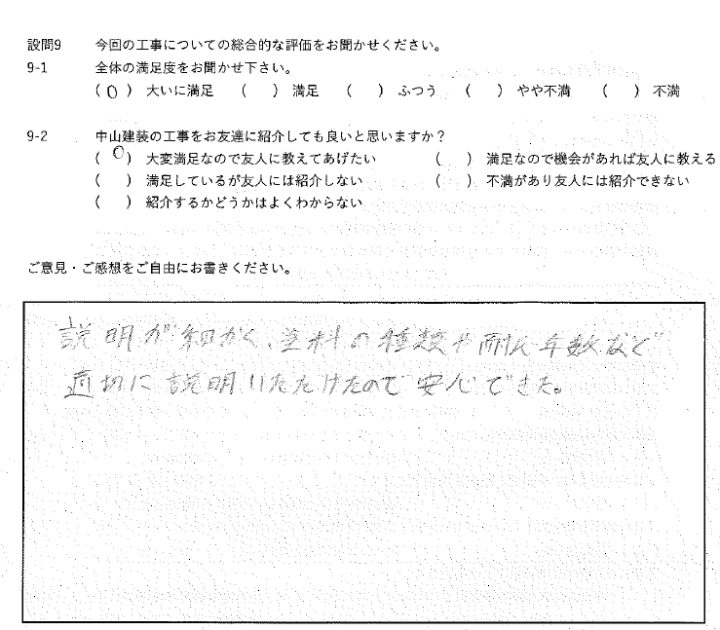 設問9 今回の工事についての総合的な評価をお聞かせください。
9-1 全体の満足度をお聞かせ下さい。
(○) 大いに満足 ( ) 満足 ( ) ふつう ( ) やや不満 ( ) 不満
9-2 中山建装の工事をお友達に紹介しても良いと思いますか？
(○) 大変満足なので友人に教えてあげたい ( ) 満足なので機会があれば友人に教える
( ) 満足しているが友人には紹介しない ( ) 不満があり友人には紹介できない
( ) 紹介するかどうかはよくわからない
ご意見・ご感想をご自由にお書きください。
説明が細かく、塗料の種類や耐久年数など
適切に説明いただけたので安心できた。